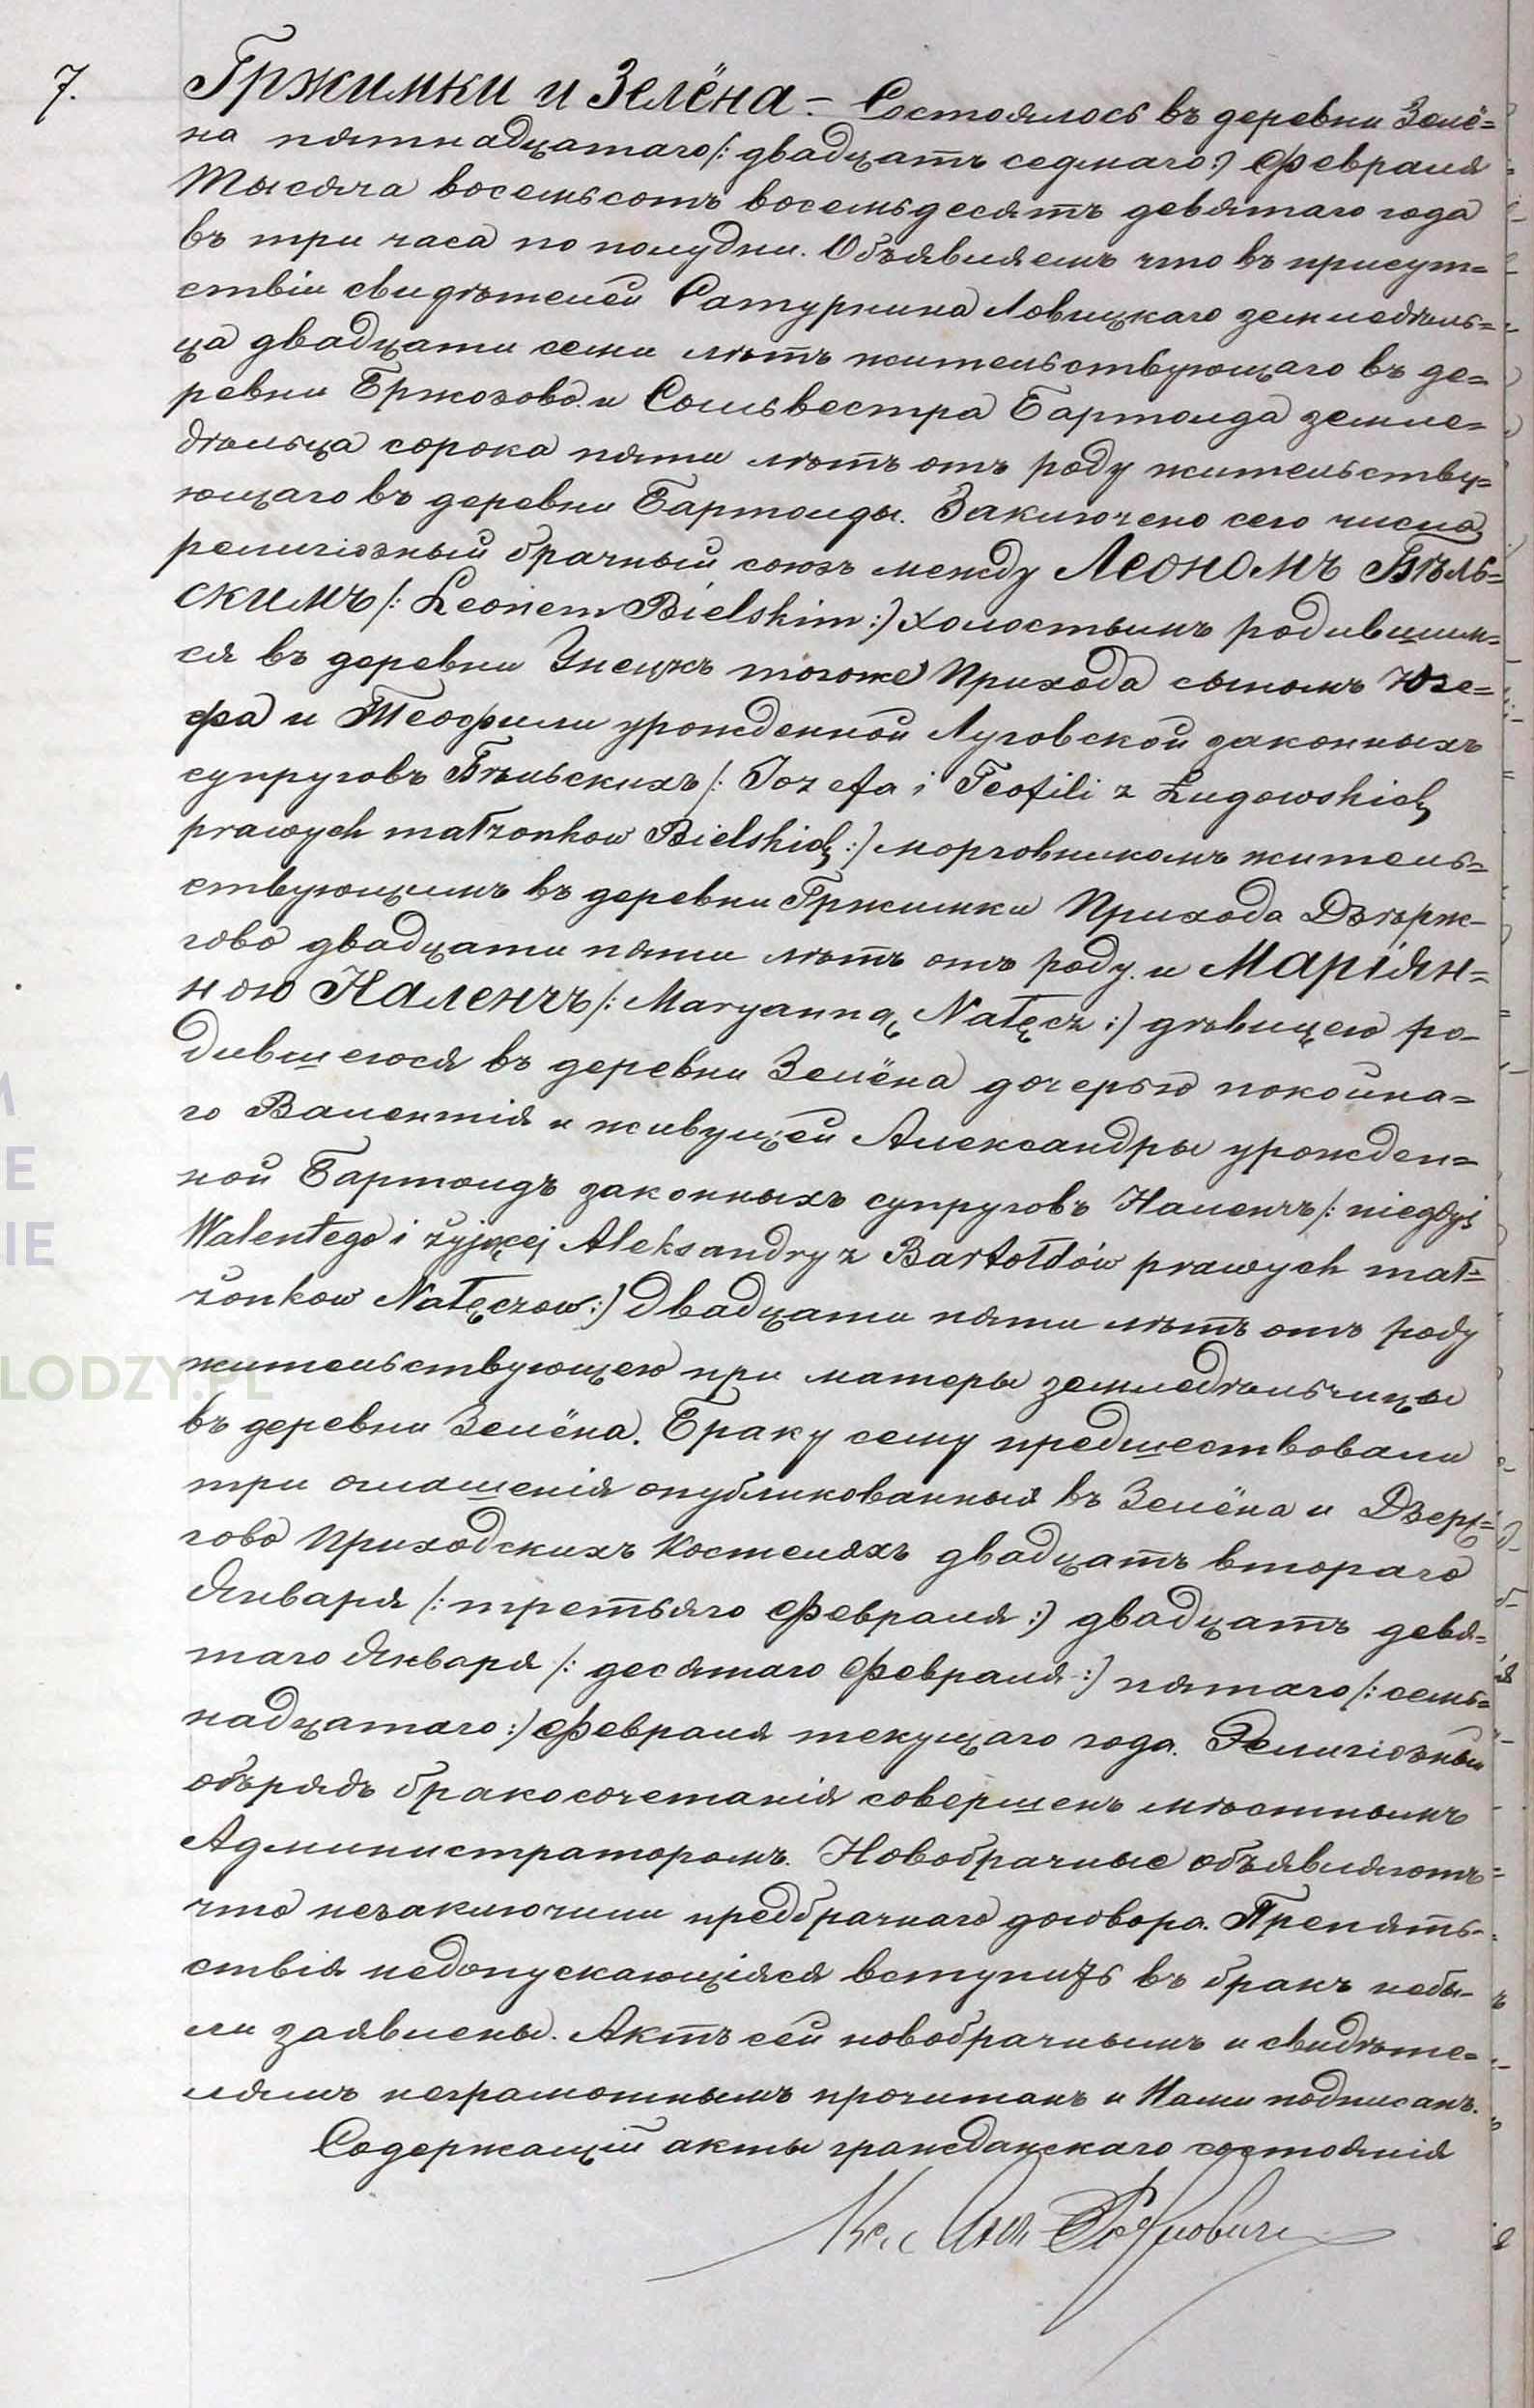 7. Гржимки и Зелёна - Состоялось въ деревни Зелё=
на пятнадцатаго /: двадцать седмаго :/ Февраля
Тысяча восемьсотъ восемьдесятъ девятаго года
въ три часа по полудни. Объявляемъ что въ присут=
ствіи свидѣтелей Сатурнина Ловицкаго земледѣль=
ца двадцати семи лѣтъ жительствующаго въ де=
ревни Бржозово и Сильвестра Бартолда земле=
дѣльца сорока пяти лѣтъ отъ роду жительству=
ющаго въ деревни Бартолды. Заключено сего числа
религіозный брачный союзъ между Леономъ Бѣль=
скимъ /: Leonem Bielskim :/ холостымъ родившим=
ся въ деревни Унецкъ тогоже Прихода сыномъ Юзе=
фа и Теофили урожденной Луговской законныхъ
супруговъ Бѣльскихъ /: Jozefa i Teofili z Ługowskich
prawych małzonkow Bielskich :/ морговникомъ житель=
ствующимъ въ деревни Гржимки Прихода Дзѣрж-
гово двадцати пяти лѣтъ отъ роду. и Маріян=
ною Наленчъ /: Maryanną Nałęcz :/ дѣвицею ро-
дившеюся въ деревни Зелёна дочерью покойна=
го Валентія и живущей Александры урожден=
ной Бартолдъ законныхъ супруговъ Наленчъ /: niegdyś
Walentego i żyjącej Aleksandry z Bartołdów prawych mał=
żonkow Nałęczow :/ двадцати пяти лѣтъ отъ роду
жительствующею при матеры земледѣльчицы
въ деревни Зелёна. Браку сему предшествовали
три оглашенія опубликованныя въ Зелёна и Дзерж=
гово Приходскихъ Костелахъ двадцать втораго
Января /: третьяго Февраля :/ двадцать девя=
таго Января /: десятаго Февраля :/ пятаго /: семь=
надцатаго :/ Февраля текущаго года. Религіозный
обърядъ бракосочетанія совершенъ мѣстнымъ
Администраторомъ. Новобрачные объявляютъ
что незаключили предбрачнаго договора. Препять-
ствія недопускающіяся вступить въ бракъ небы-
ли заявлены. Актъ сей новобрачнымъ и свидѣте=
лямъ неграмотнымъ прочитанъ и Нами подписанъ.
Содержащій акты гражданскаго состоянія
LODZY.PL